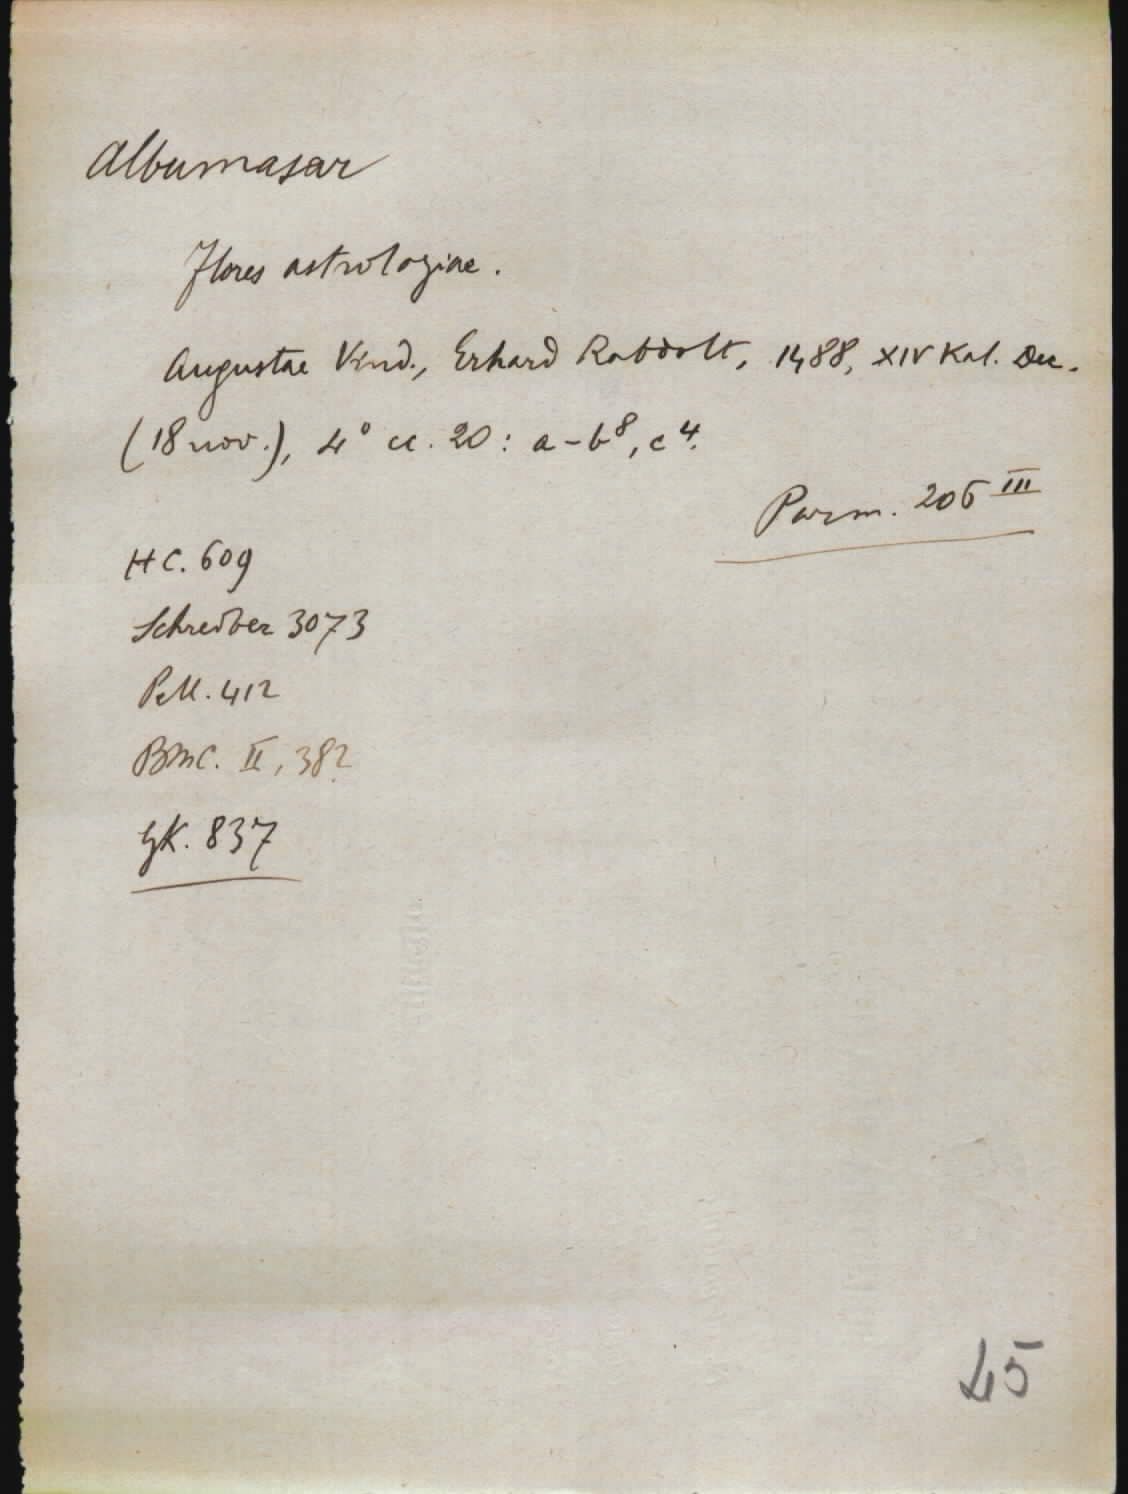 Albumasar
Flores astrologiae.
Augustae Vind., Erhard Ratdolt, 1488, XIV Kal. Dec.
(18 nov.), 4° cc. 20: a-b⁸, c⁴.
Parm. 206 III
HC. 609
Schreiber 3073
Pell. 412
BMC. II, 382
GK. 837
45